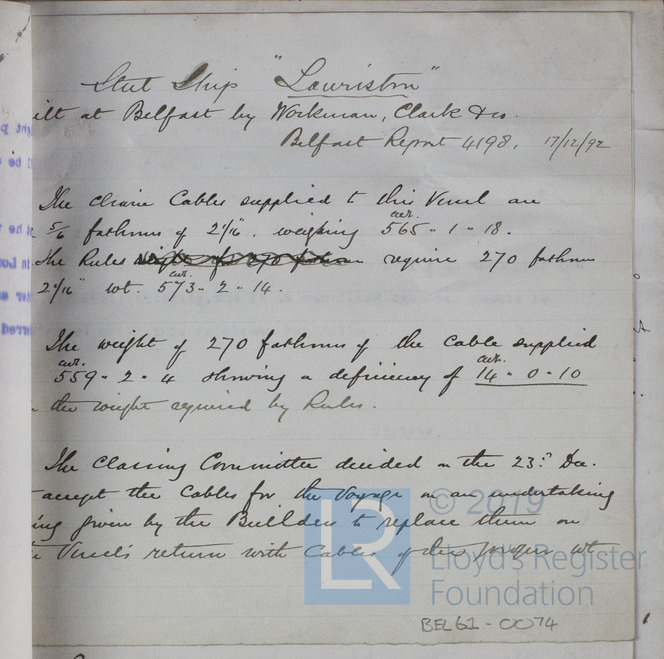 Steel Ship "Lawriston"
ilt at Belfast by Workman, Clark & Co.
Belfast Report 4198. 17/12/92
The chain Cables supplied to this Vessel are
5/6 fathoms of 2 1/16". weighing cwt. 565 - 1 - 18.
the Rules require 270 fathoms
2 1/16" wt cwt. 573 - 2 - 14.
The weight of 270 fathoms of the cable supplied
cwt. 559 - 2 - 4 showing a deficiency of cwt. 14 - 0 - 10
the weight required by Rules.
The Classing Committee decided on the 23rd. Dec.
accept the Cables for the Voyage on an undertaking
ing given by the Builders to replace them on
Vessel's return with Cables of the proper wt
© 2019
LR
Lloyd's Register
Foundation
BEL61-0074